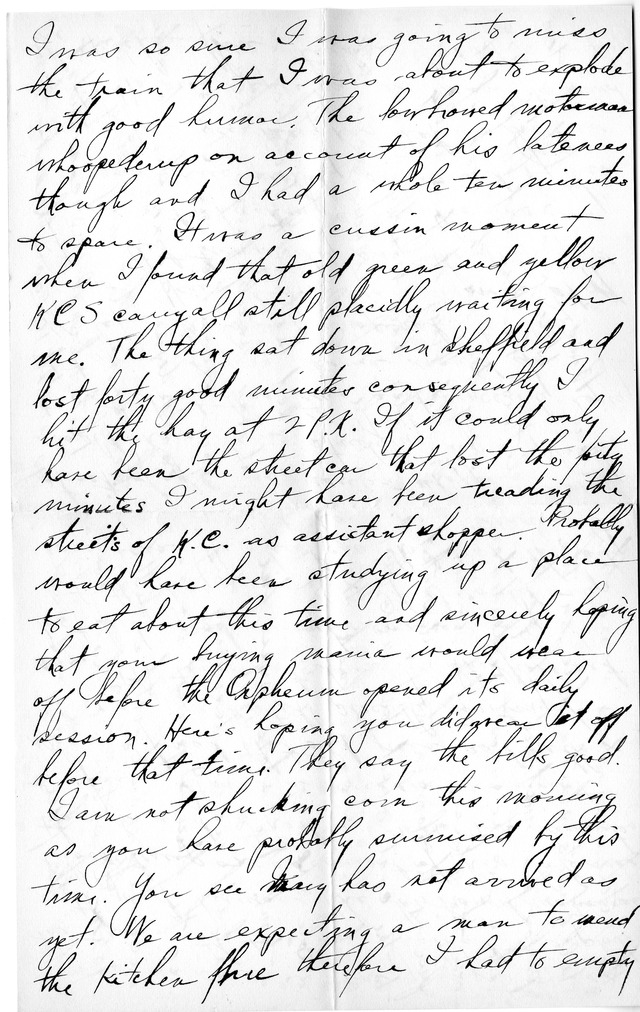 I was so sure I was going to miss
the train that I was about to explode
with good humor. The lowbrowed motorman
whoopederup on account of his lateness
though and I had a whole ten minutes
to spare. It was a cussin moment
when I found that old green and yellow
KCS carryall still placidly waiting for
me. The thing sat down in Sheffield and
lost forty good minutes consequently I
hit the hay at 2 P.K. If it could only
have been the streetcar that lost the forty
minutes I might have been treading the
streets of K.C. as assistant shopper. Probably
would have been studying up a place
to eat about this time and sincerely hoping
that your buying mania would wear
off before the Orpheum opened its daily
session. Here's hoping you did wear it off
before that time. They say the bills good.
I am not shucking corn this morning
as you have probably surmised by this
time. You see Mary has not arrived as
yet. We are expecting a man to mend
the kitchen flue therefore I had to empty